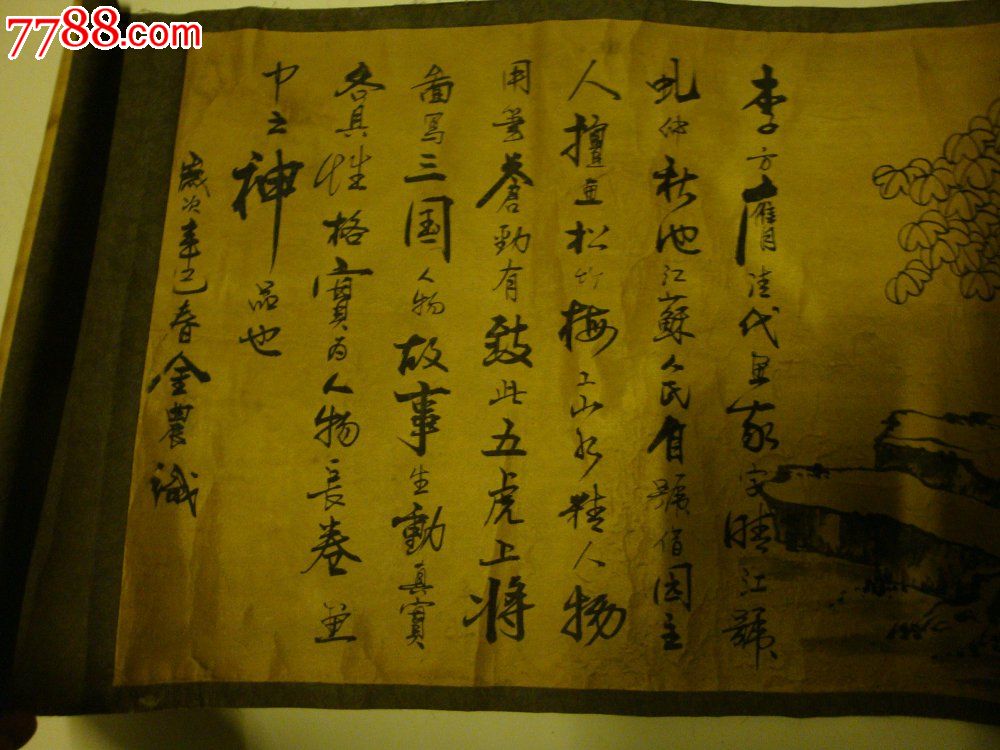 7788.com
李方膺清代画家字晴江號
虬仲秋池江蘇人氏自號借园主
人擅画松竹梅工山水精人物
用笔蒼勁有致此五虎上將
啚写三国人物故事生動真實
各具性格實为人物長卷画
中之神品也
歲次辛巳春金農識